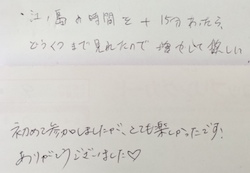 ・江ノ島の時間を+15分あったら、
どうくつまで見れたので 検討して欲しい
初めて参加しましたが、とても楽しかったです!
ありがとうございました♡